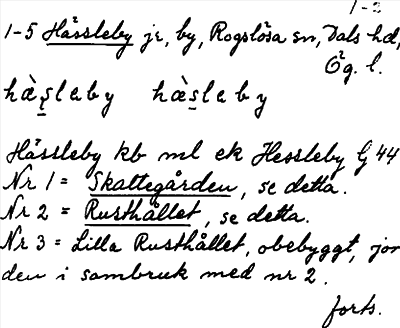 1-5 Hässleby jr, by, Rogslösa sn, Dals hd,
Ög. l.
hàs̥leby hàs̥leby
Hässleby kb ml ek Hessleby G 44
Nr 1 = Skattegården, se detta.
Nr 2 = Rusthållet, se detta.
Nr 3 = Lilla Rusthållet, obebyggt, jor
den i sambruk med nr 2.
forts.